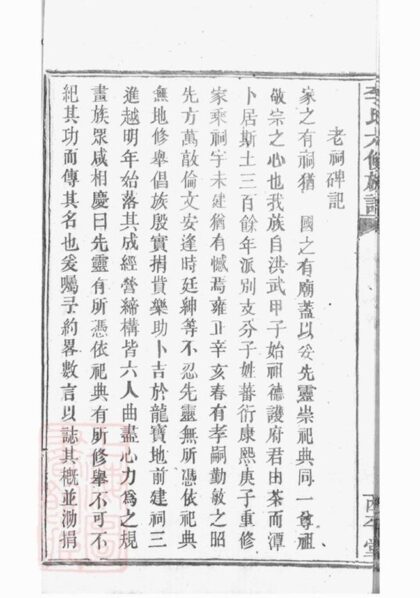 李氏六修族譜
老祠碑記
家之有祠猶 國之有廟蓋以妥先靈崇祀典同一尊祖
敬宗之心也我族自洪武甲子始祖德護府君由茶而潭
卜居斯土三百餘年派別支分子姓蕃衍康熙庚子重修
家乘祠宇未建猶有憾焉雍正辛亥春有孝嗣勤敏之昭
先方萬敲倫文安逢時廷紳等不忍先靈無所憑依祀典
無地修舉倡族殷實捐貲樂助卜吉於龍寶地前建祠三
進越明年始落其成經營締構皆六人曲盡心力為之規
畫族眾咸相慶曰先靈有所憑依祀典有所修舉不可不
紀其功而傳其名也爰囑予約畧數言以誌其概並泐捐
堂